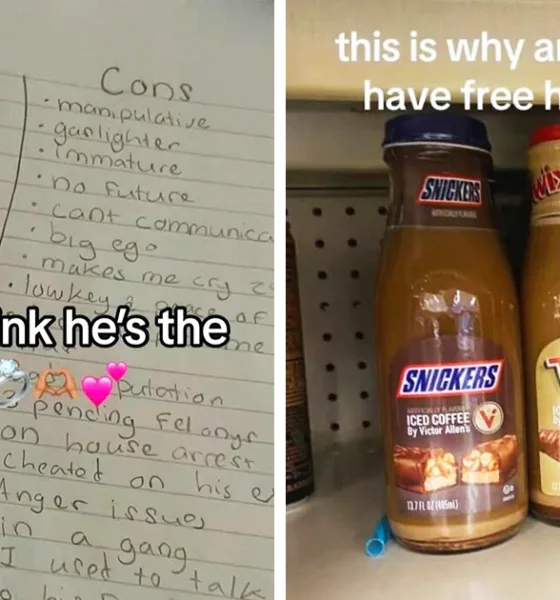 Cons
· manipulative
· gaslighter
· immature
· no future
· cant communica
· big ego
· makes me cry 2
· lowkey a of
me
nk he's the
putation
pending felonys
on house arrest
cheated on his e
Anger issues
in a gang
I used to talk
this is why a
have free h
SNICKERS
ARTIFICIALLY FLAVORED
SNICKERS
ARTIFICIALLY FLAVORED
ICED COFFEE
By Victor Allen's
V
13.7 FL OZ (405mL)